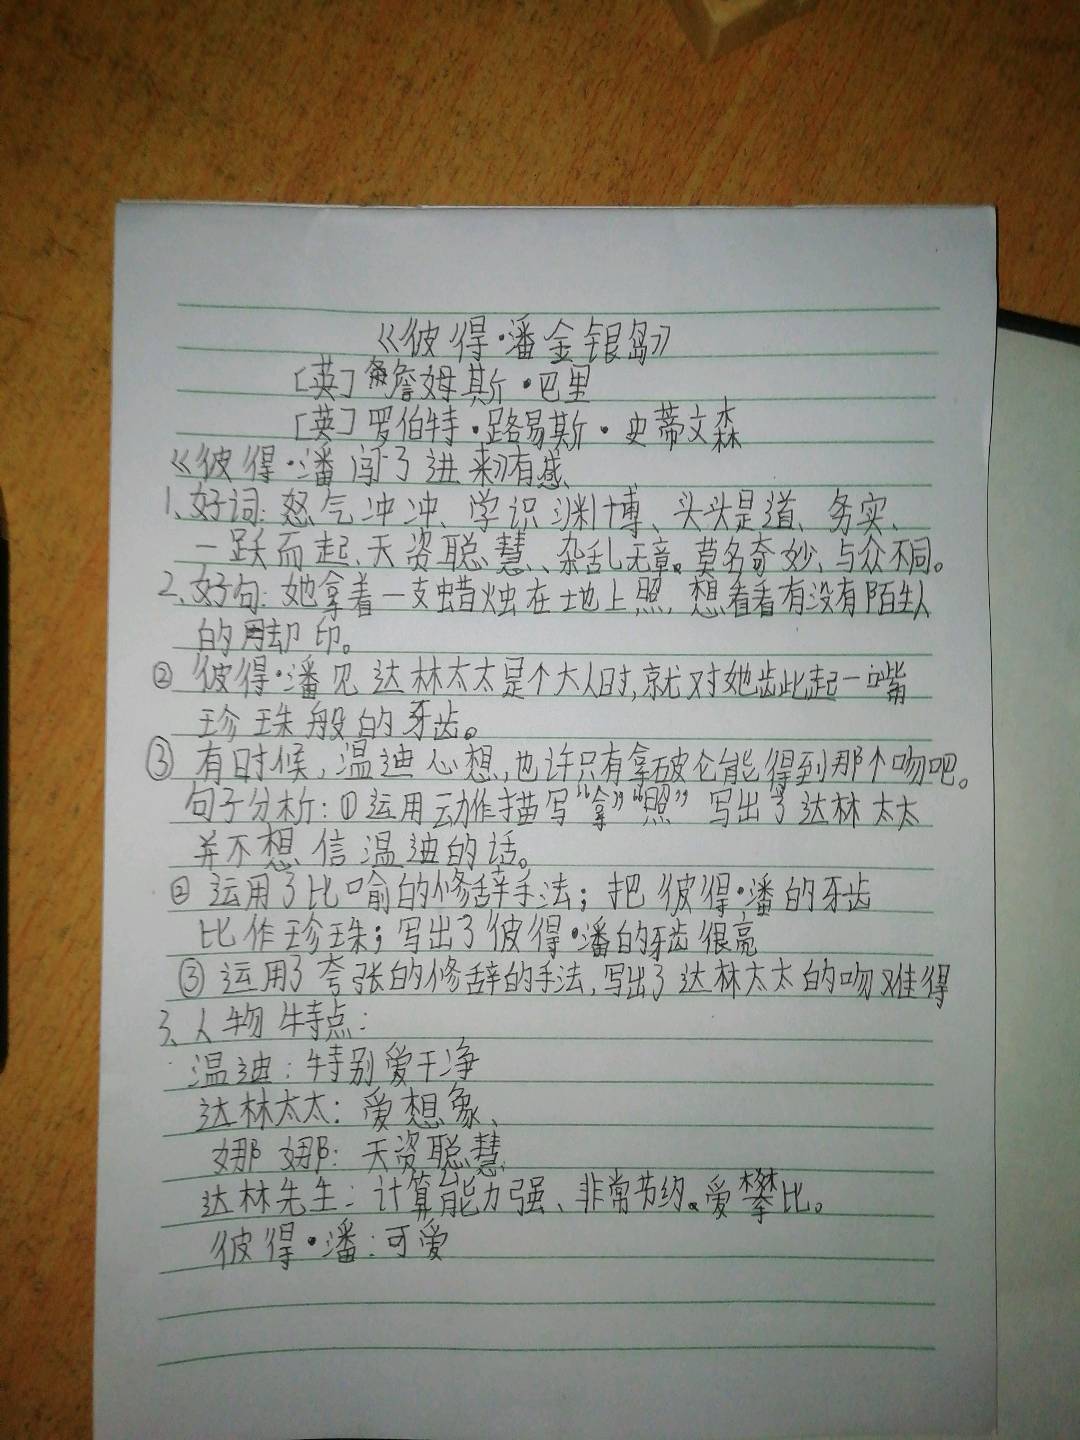 《彼得·潘金银岛》
[英]詹姆斯·巴里
[英]罗伯特·路易斯·史蒂文森
《彼得·潘闯了进来》有感
1、好词:怒气冲冲、学识渊博、头头是道、务实、
一跃而起、天资聪慧、杂乱无章。莫名奇妙、与众不同。
2、好句:她拿着一支蜡烛在地上照,想看看有没有陌生人
的脚印。
② 彼得·潘见达林太太是个大人时,就对她龇起一嘴
珍珠般的牙齿。
③ 有时候,温迪心想,也许只有拿破仑能得到那个吻吧。
句子分析:①运用动作描写“拿”“照”写出了达林太太
并不想信温迪的话。
② 运用了比喻的修辞手法;把彼得·潘的牙齿
比作珍珠;写出了彼得·潘的牙齿很亮
③ 运用了夸张的修辞的手法,写出了达林太太的吻难得
3、人物特点:
温迪:特别爱干净
达林太太:爱想象、
娜娜:天资聪慧
达林先生:计算能力强、非常节约。爱攀比。
彼得·潘:可爱